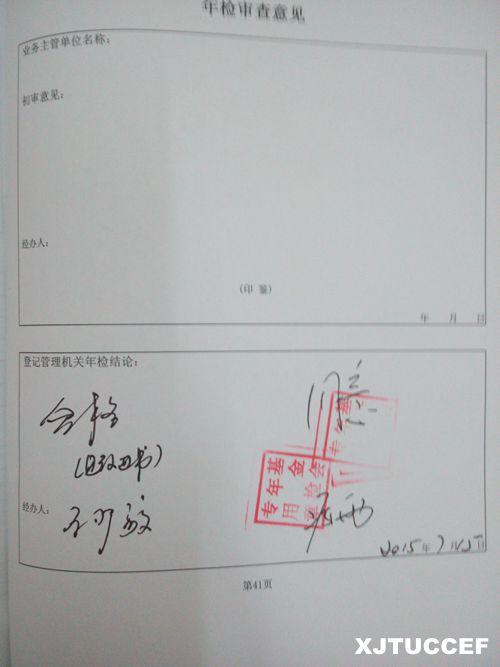 年检审查意见
业务主管单位名称:
初审意见:
经办人:
(印 鉴)
年 月 日
登记管理机关年检结论:
合格
经办人:
基金会
年检
专用章
2015年7月15日
第41页
XJTUCCEF